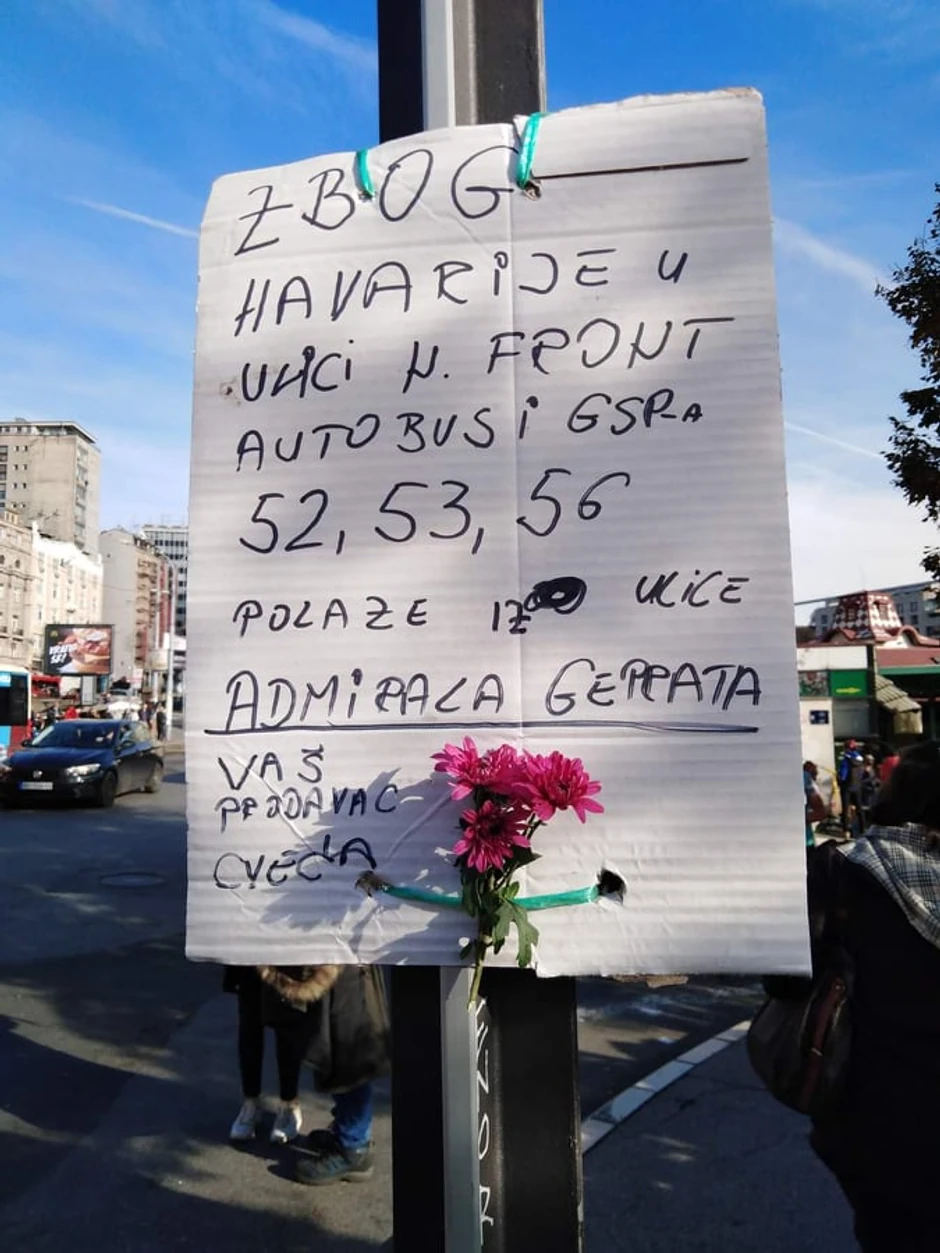 ZBOG
HAVARIJE U
ULICI N. FRONT
AUTOBUSI GSP-a
52, 53, 56
POLAZE IZ ULICE
ADMIRALA GEPRATA
VAŠ
PRODAVAC
CVEĆA